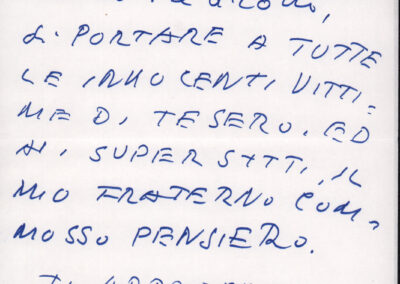 DI PORTARE A TUTTE
LE INNOCENTI VITTI=
ME DI TESERO, ED
AI SUPERSTITI, IL
MIO FRATERNO COM=
MOSSO PENSIERO.
TI